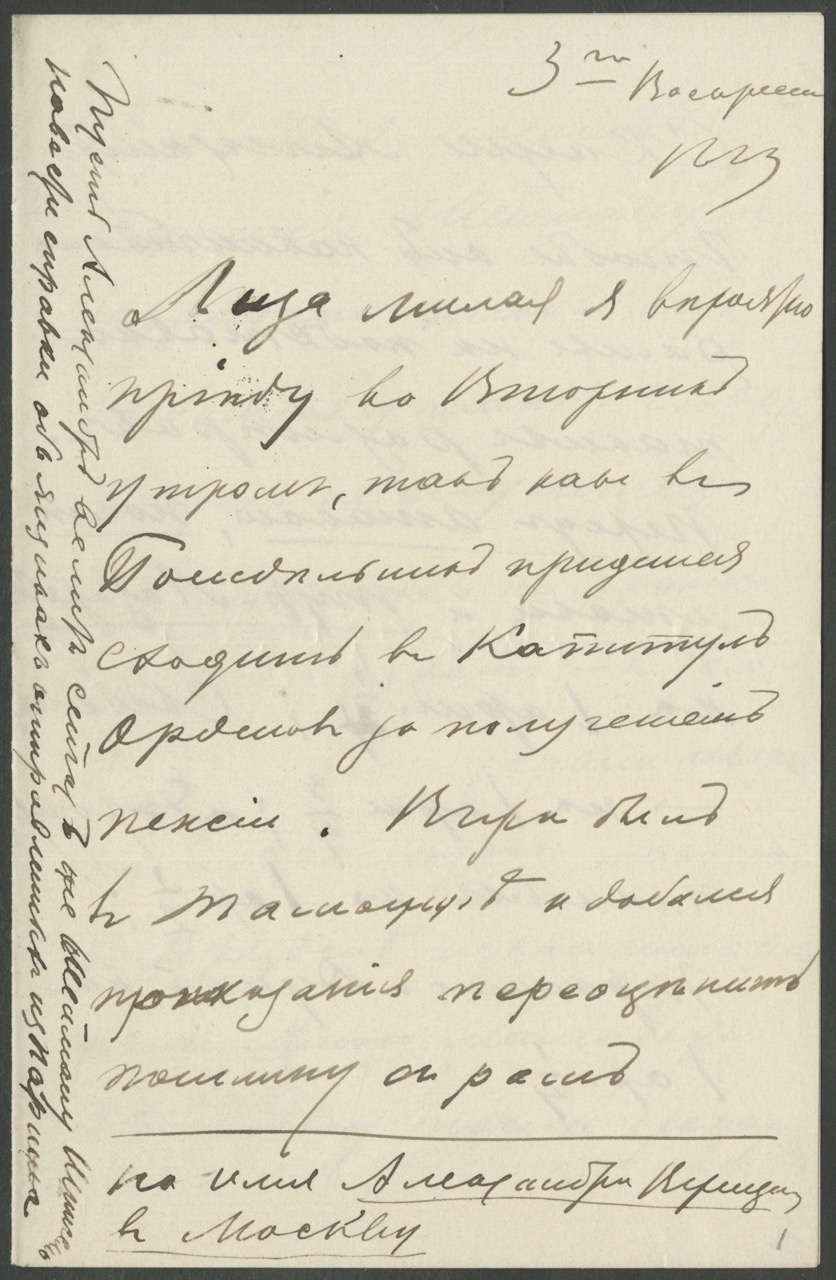 3го Воскресен
Лиза милая я вероятно
пріѣду во Вторникъ
утромъ, такъ какъ въ
Понедѣльникъ придется
сходить въ Капитулъ
Орденовъ за полученіемъ
пенсіи. Вчера былъ
въ Таможнѣ и добился
приказанія переоцѣнить
пошлину съ рамъ
на имя Александра Верещаг
въ Москву
Пусть Александръ велитъ сейчасъ же
навести справки объ ящикахъ отправленныхъ изъ Парижа